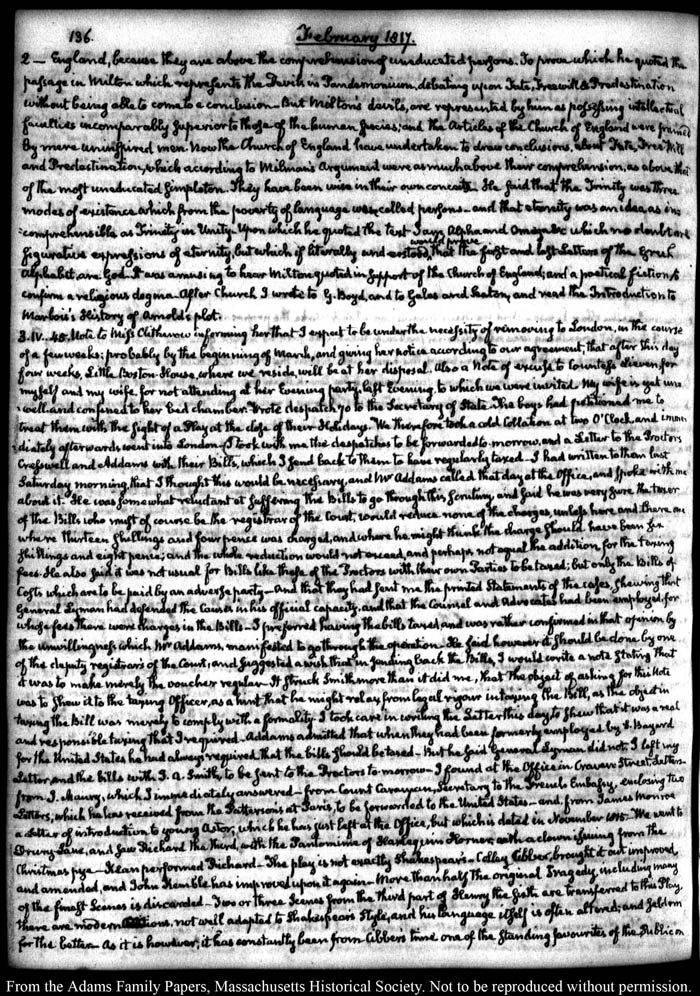 136.
February 1817.
2 — England, because they are above the comprehension of uneducated persons. To prove which he quoted the
passage in Milton which represents the Devils in Pandemonium, debating upon Fate, Freewill & Predestination
without being able to come to a conclusion — But Milton's devils, are represented by him as possessing intellectual
faculties incomparably superior to those of the human species; and the Articles of the Church of England were framed
by mere uninspired men. Now the Church of England have undertaken to draw conclusions, about Fate, Free Will
and Predestination, which according to Milman's Argument were as much above their comprehension, as above that
of the most uneducated simpleton. They have been wise in their own conceits. He said that the Trinity was three
modes of existence which from the poverty of language were called persons — and that eternity was an idea as in-
comprehensible as Trinity in Unity. Upon which he quoted the text I am Alpha and Omega &c which no doubt are
figurative expressions of eternity, but which if literally understood, would prove that the first and last Letters of the Greek
Alphabet, are God. It was amusing to hear Milton quoted in support of the Church of England; and a poetical fiction to
confirm a religious dogma — After Church I wrote to G. Boyd, and to Gales and Seaton, and read the Introduction to
Marbois's History of Arnold's plot.
3. IV. 45. Note to Miss Clitherow informing her that I expect to be under the necessity of removing to London, in the course
of a few weeks; probably by the beginning of March, and giving her notice according to our agreement, that after this day
four weeks, Little Boston House, where we reside, will be at her disposal. Also a Note of excuse to Countess Lieven for
myself and my wife, for not attending at her Evening party, last Evening, to which we were invited. My wife is yet un-
well and confined to her bed chamber. Wrote despatch 70 to the Secretary of State. The boys had petitioned me to
treat them with the sight of a Play at the close of their Holidays. We therefore took a cold Collation at two O'Clock, and imme-
diately afterwards, went into London. I took with me the despatches to be forwarded to-morrow, and a Letter to the Proctors
Cresswell and Addams with their Bills, which I send back to them to have regularly taxed — I had written to them last
Saturday morning, that I thought this would be necessary, and Mr Addams called that day at the Office, and spoke with me
about it. He was somewhat reluctant at suffering the Bills to go through this scrutiny, and said he was very sure the taxer
of the Bills who must of course be the registrar of the Court, would reduce none of the charges, unless here and there one
where thirteen shillings and four pence was charged, and where he might think the charge should have been six
shillings and eight pence; and the whole reduction would not exceed, and perhaps not equal the addition, for the taxing
fees. He also said it was not usual for Bills like those of the Proctors with their own Parties to be taxed; but only the Bills of
Costs which are to be paid by an adverse party — And that they had sent me the printed Statements of the cases, shewing that
General Lyman had defended the Causes in his official capacity, and that the Counsel and Advocates had been employed, for
whose fees there were charges in the Bills — I preferred having the bills taxed and was rather confirmed in that opinion by
the unwillingness which Mr Addams, manifested to go through the operation — He said however it should be done by one
of the deputy registrars of the Court; and suggested a wish that in sending back the Bills, I would write a note stating that
it was to make merely the voucher regular — It struck Smith more than it did me, that the object of asking for this Note
was to shew it to the taxing Officer, as a hint that he might relax from legal rigour in taxing the Bill, as the object in
taxing the Bill was merely to comply with a formality. I took care in writing the Letter this day to shew that it was a real
and responsible taxing that I required — Addams admitted that when they had been formerly employed by S. Bayard
for the United States he had always required that the bills should be taxed — But he said General Lyman did not. I left my
Letter and the bills with J. A. Smith, to be sent to the Proctors to-morrow — I found at the Office in Craven Street, Letters
from J. Maury, which I immediately answered — from Count Caraman, Secretary to the French Embassy, enclosing two
Letters, which he has received from the Pattersons at Paris, to be forwarded to the United States — and from James Monroe
a Letter of introduction to young Astor, which he has just left at the Office, but which is dated in November 1815. We went to
Drury Lane, and saw Richard the third, with the Pantomime of Harlequin Horner, with a clown issuing from the
Christmas pye — Kean performed Richard — The play is not exactly Shakespear's — Colley Cibber, brought it out improved,
and amended, and John Kemble has improved upon it again — More than half the original Tragedy, including many
of the finest Scenes is discarded — Two or three Scenes from the third part of Henry the Sixth are transferred to this Play,
there are modern additions, not well adapted to Shakespear's Style, and his language itself is often altered; and seldom
for the better — As it is however, it has constantly been from Cibber's time one of the standing favourites of the Public on
From the Adams Family Papers, Massachusetts Historical Society. Not to be reproduced without permission.